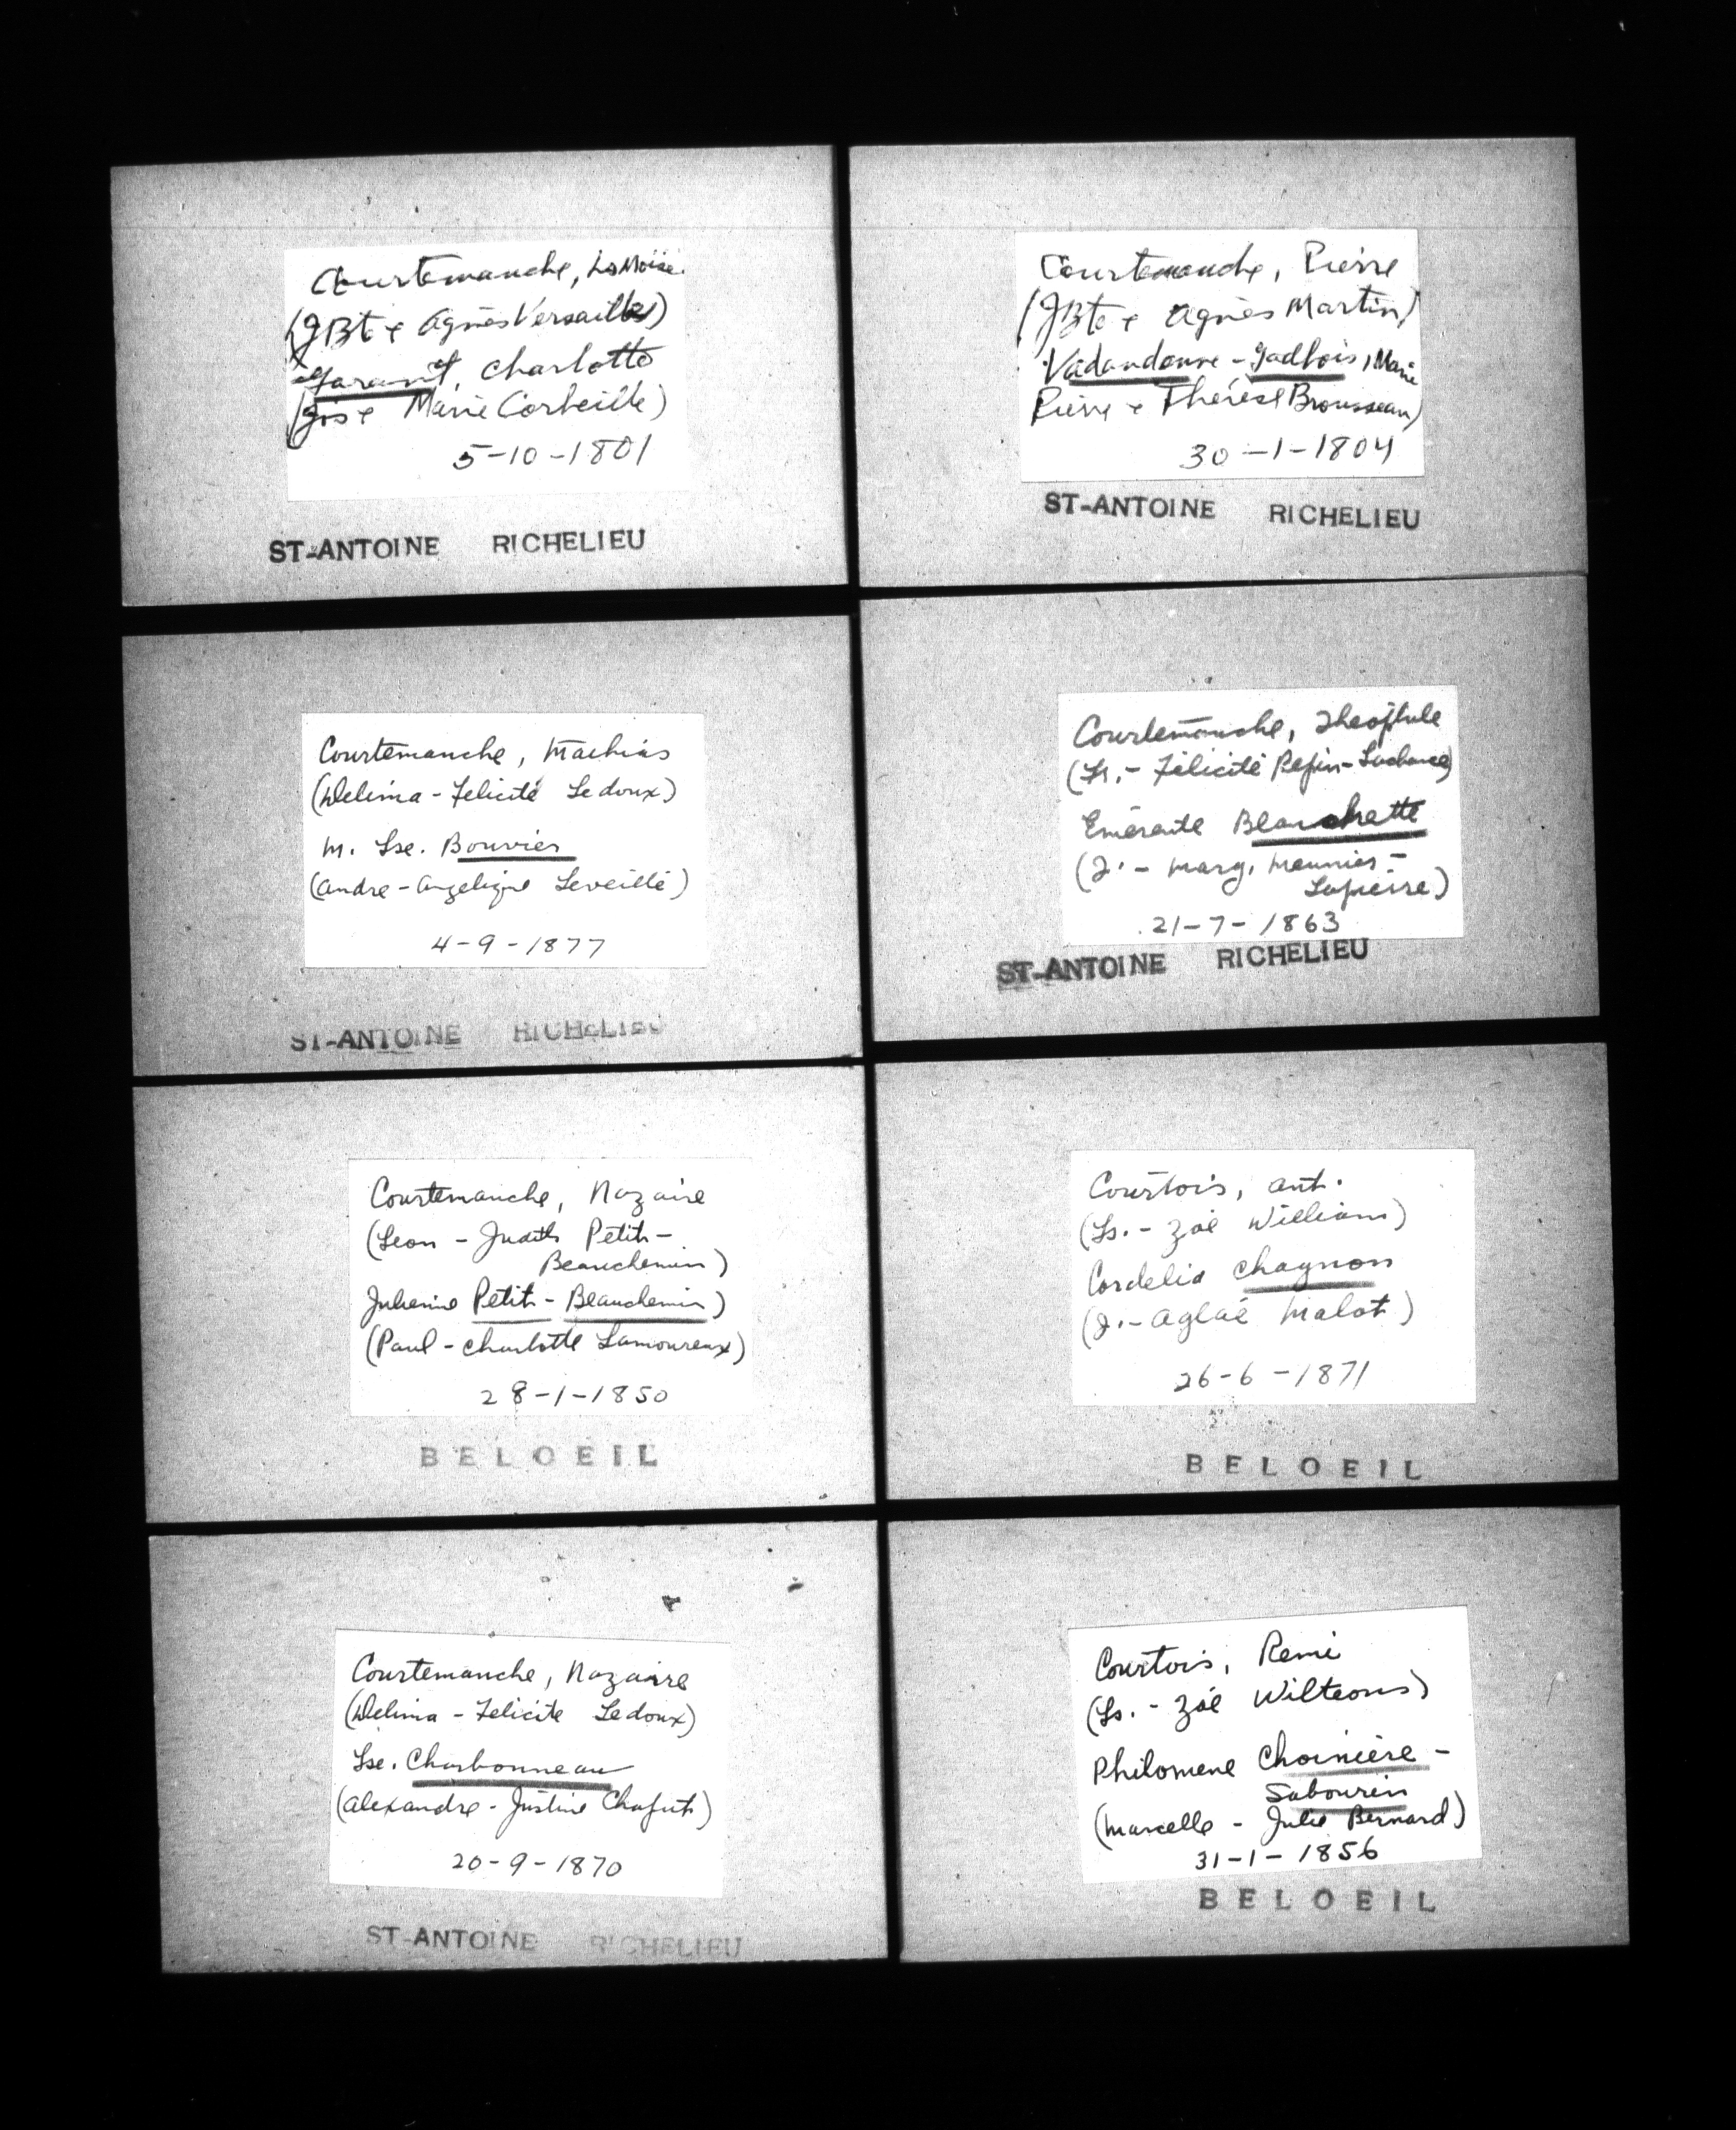 Courtemanche, Ls Moise.
(JBte & Agnès Versailles)
Garant, Charlotte
(Jos & Marie Corbeille)
5-10-1801
ST-ANTOINE RICHELIEU
Courtemanche, Pierre
(JBte & Agnès Martin)
Vadandonne - Gadbois, Marie
Pierre & Thérèse Brousseau)
30-1-1804
ST-ANTOINE RICHELIEU
Courtemanche, Mathias
(Delima - Felicité Ledoux)
M. Lse. Bouvier
(Andre - Angelique Leveillé)
4-9-1877
ST-ANTOINE RICHELIEU
Courtemanche, Theophile
(Ls. - Félicité Pepin - Lachance)
Emérante Blanchette
(J. - Marg. Meunier -
Lapierre)
21-7-1863
ST-ANTOINE RICHELIEU
Courtemanche, Nazaire
(Leon - Judith Petit -
Beauchemin)
Julienne Petit - Beauchemin)
(Paul - Charlotte Lamoureux)
28-1-1850
BELOEIL
Courtois, Ant.
(Ls. - Zoé William)
Cordelia Chagnon
(J. - Aglaé Malot)
26-6-1871
BELOEIL
Courtemanche, Nazaire
(Delima - Felicite Ledoux)
Lse. Charbonneau
(Alexandre - Justine Chaput)
20-9-1870
ST-ANTOINE RICHELIEU
Courtois, Remi
(Ls. - Zoé Wilteons)
Philomene Choinière -
Sabourin
(Marcelle - Julie Bernard)
31-1-1856
BELOEIL